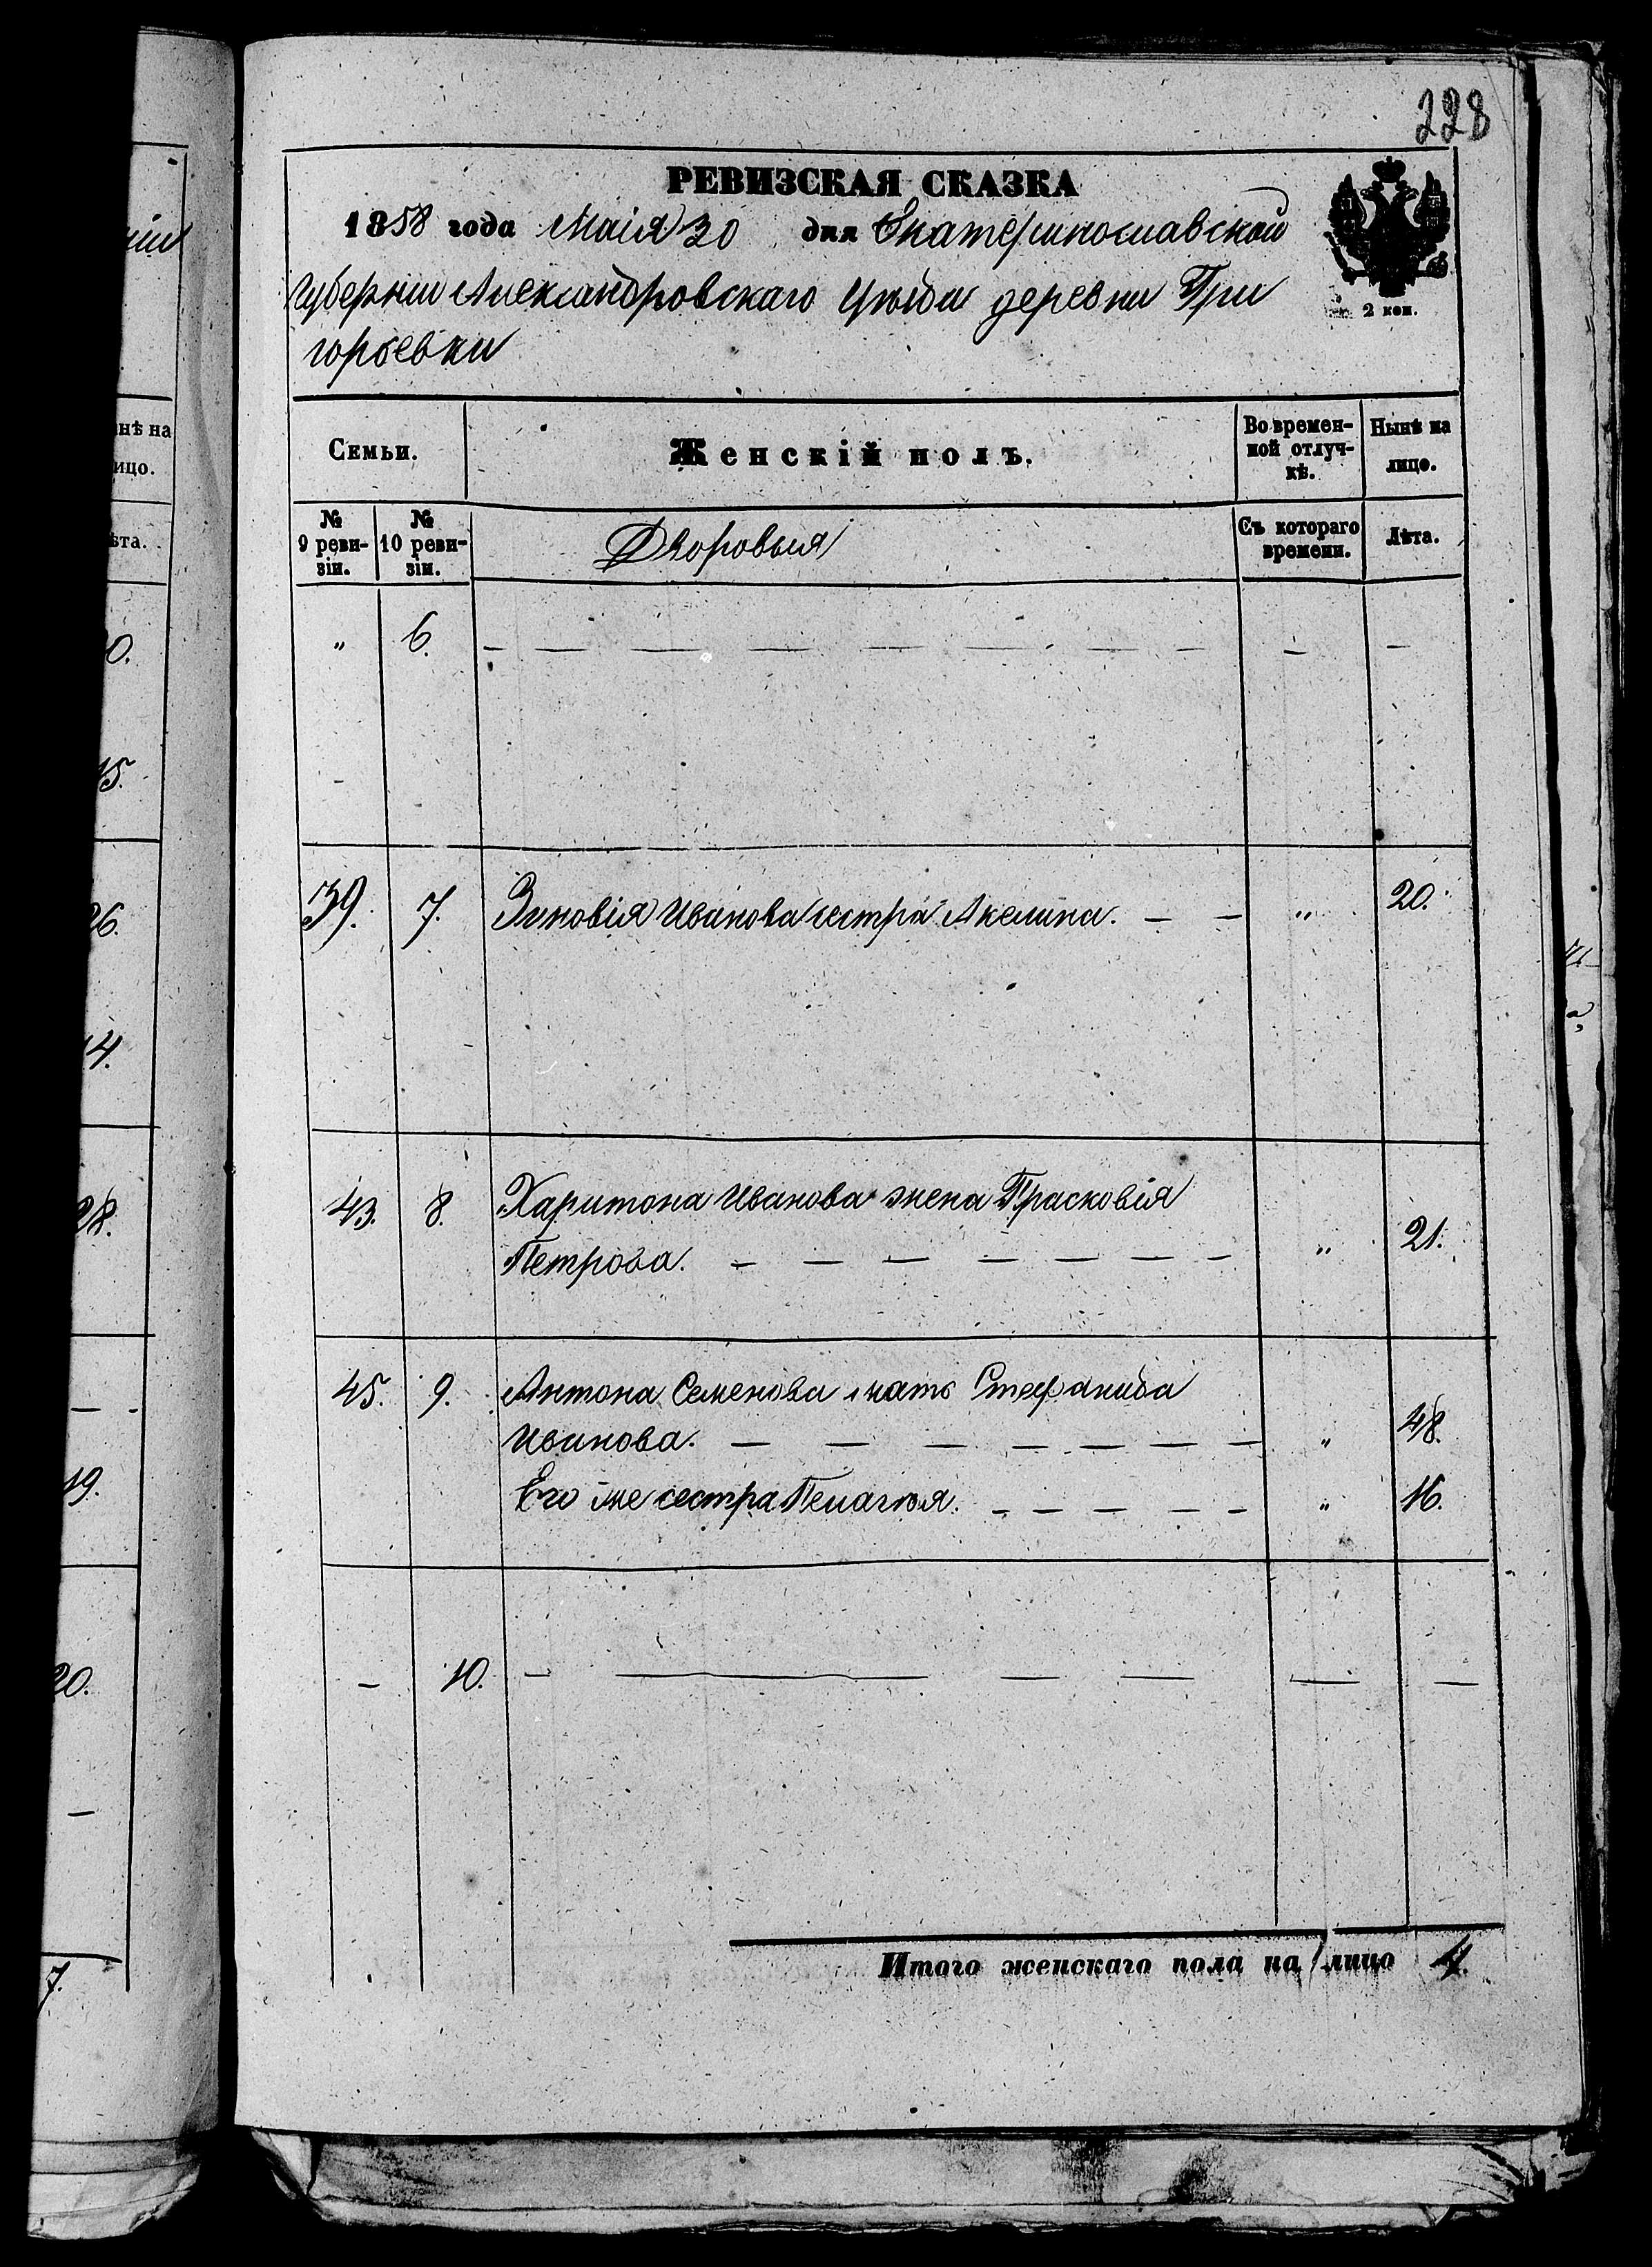 228
РЕВИЗСКАЯ СКАЗКА
1858 года Маія 30 дня Екатеринославской
Губерніи Александровскаго Уѣзда деревни Гри
горьевки
2 коп.
Семьи.
Женскій полъ.
Во времен-
ной отлуч-
кѣ.
Нынѣ на
лицо.
№
9 реви-
зіи.
№
10 реви-
зіи.
Дворовыя
Съ котораго
времени.
Лѣта.
" 6. — — — — — — — — — — —
39. 7. Зиновія Иванова сестра Акелина. — — " 20.
43. 8. Харитона Иванова жена Прасковія
Петрова. — — — — — — — " 21.
45. 9. Антона Семенова мать Стефанида
Иванова. — — — — — — — " 48.
Его же сестра Пелагѣя. — — — — — " 16.
— 10. — — — — — —
Итого женскаго пола на лицо 4.
нѣ на
ицо.
ѣта.
0.
15.
26.
14.
28.
—
19.
20.
—
7.